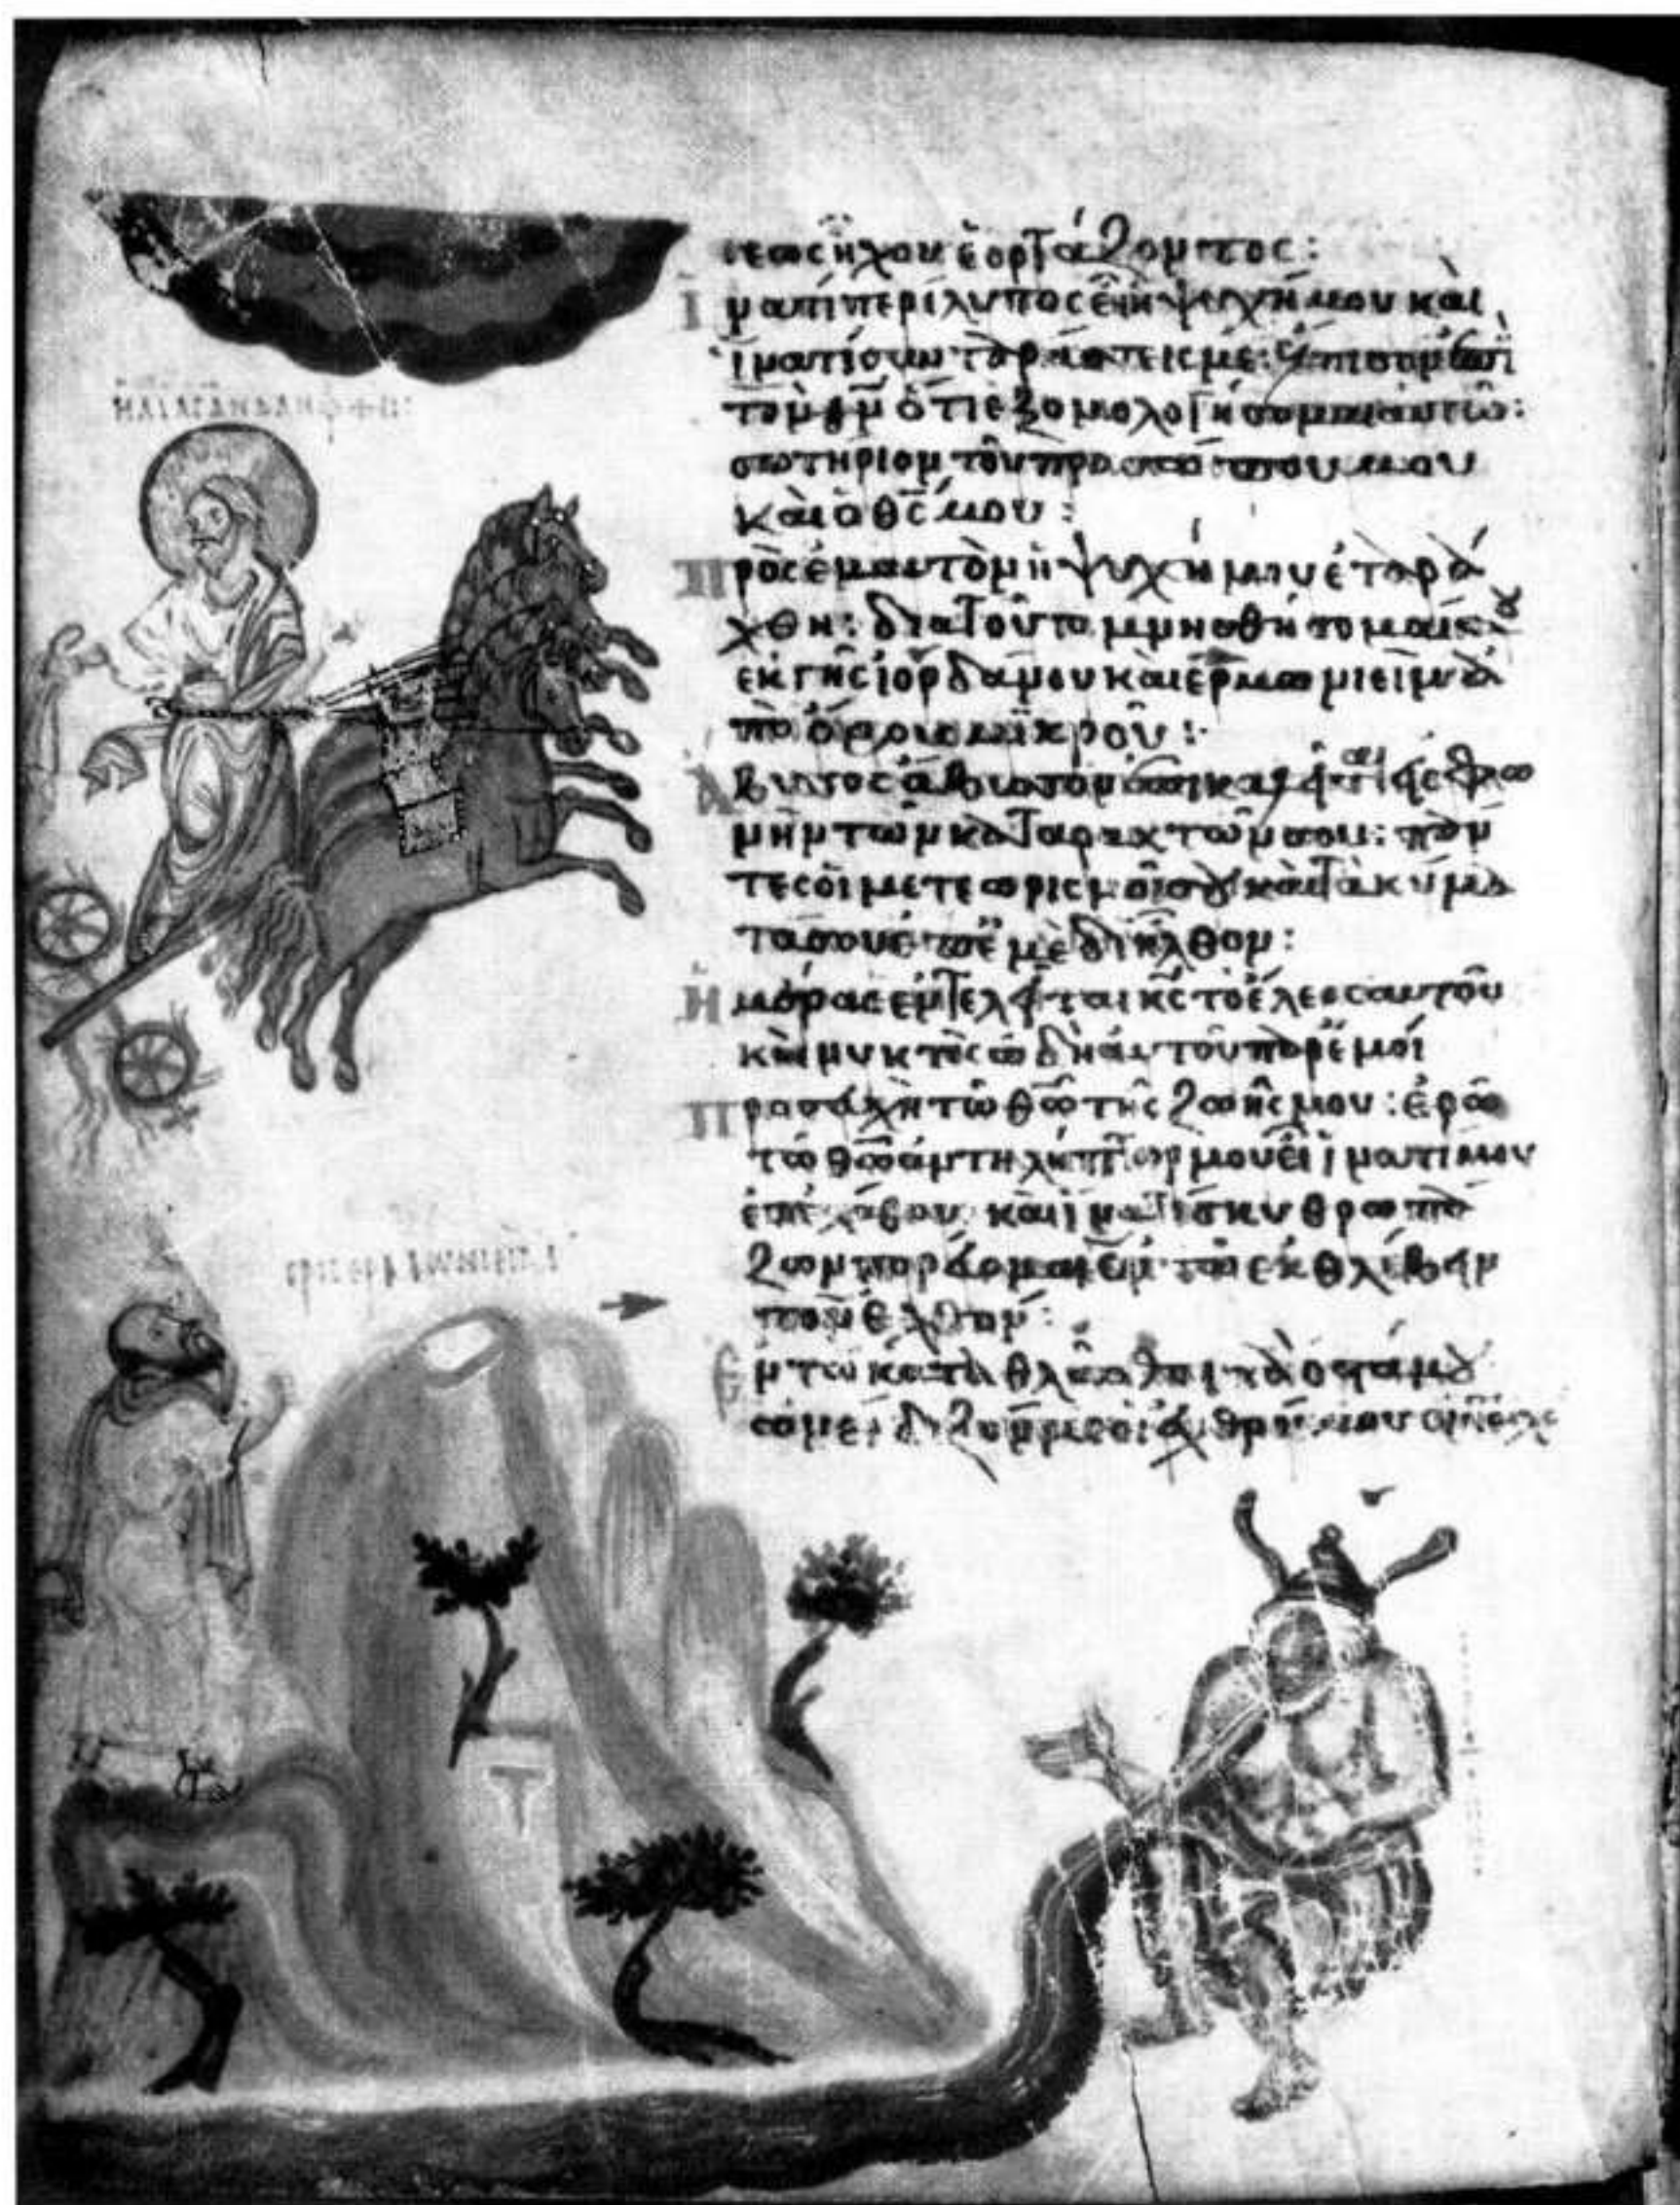 σεως ἤχου ἑορτάζοντος:
Ἱνατί περίλυπος εἶ ἡ ψυχή μου καὶ
ἱνατί συνταράσσεις με: ἔλπισον ἐπὶ
τὸν θν ὅτι ἐξομολογήσομαι αὐτῶ:
σωτήριον τοῦ προσώπου μου
καὶ ὁ θς μου:
Πρὸς ἐμαυτὸν ἡ ψυχή μου ἐταρά
χθη: διατοῦτο μνησθήσομαί σου
ἐκ γῆς ἰορδάνου καὶ ἐρμωνιεὶμ ἀ
πὸ ὄρους μικροῦ:
Ἄβυσσος ἄβυσσον ἐπικαλεῖται εἰς φω
νὴν τῶν καταρακτῶν σου: πάν
τες οἱ μετεωρισμοί σου καὶ τὰ κύμα
τά σου ἐπ ἐμὲ διῆλθον:
Ἡμέρας ἐντελεῖται κς τὸ ἔλεος αὐτοῦ
καὶ νυκτὸς ὠδὴ αὐτοῦ παρ ἐμοί
Προσευχὴ τῶ θῶ τῆς ζωῆς μου: ἐρῶ
τῶ θῶ ἀντιλήπτωρ μου εἶ ἱνατί μου
ἐπελάθου καὶ ἱνατί σκυθρωπά
ζων πορεύομαι ἐν τῶ ἐκθλίβειν
τὸν ἐχθρόν:
Ἐν τῶ καταθλᾶσθαι τὰ ὀστᾶ μου